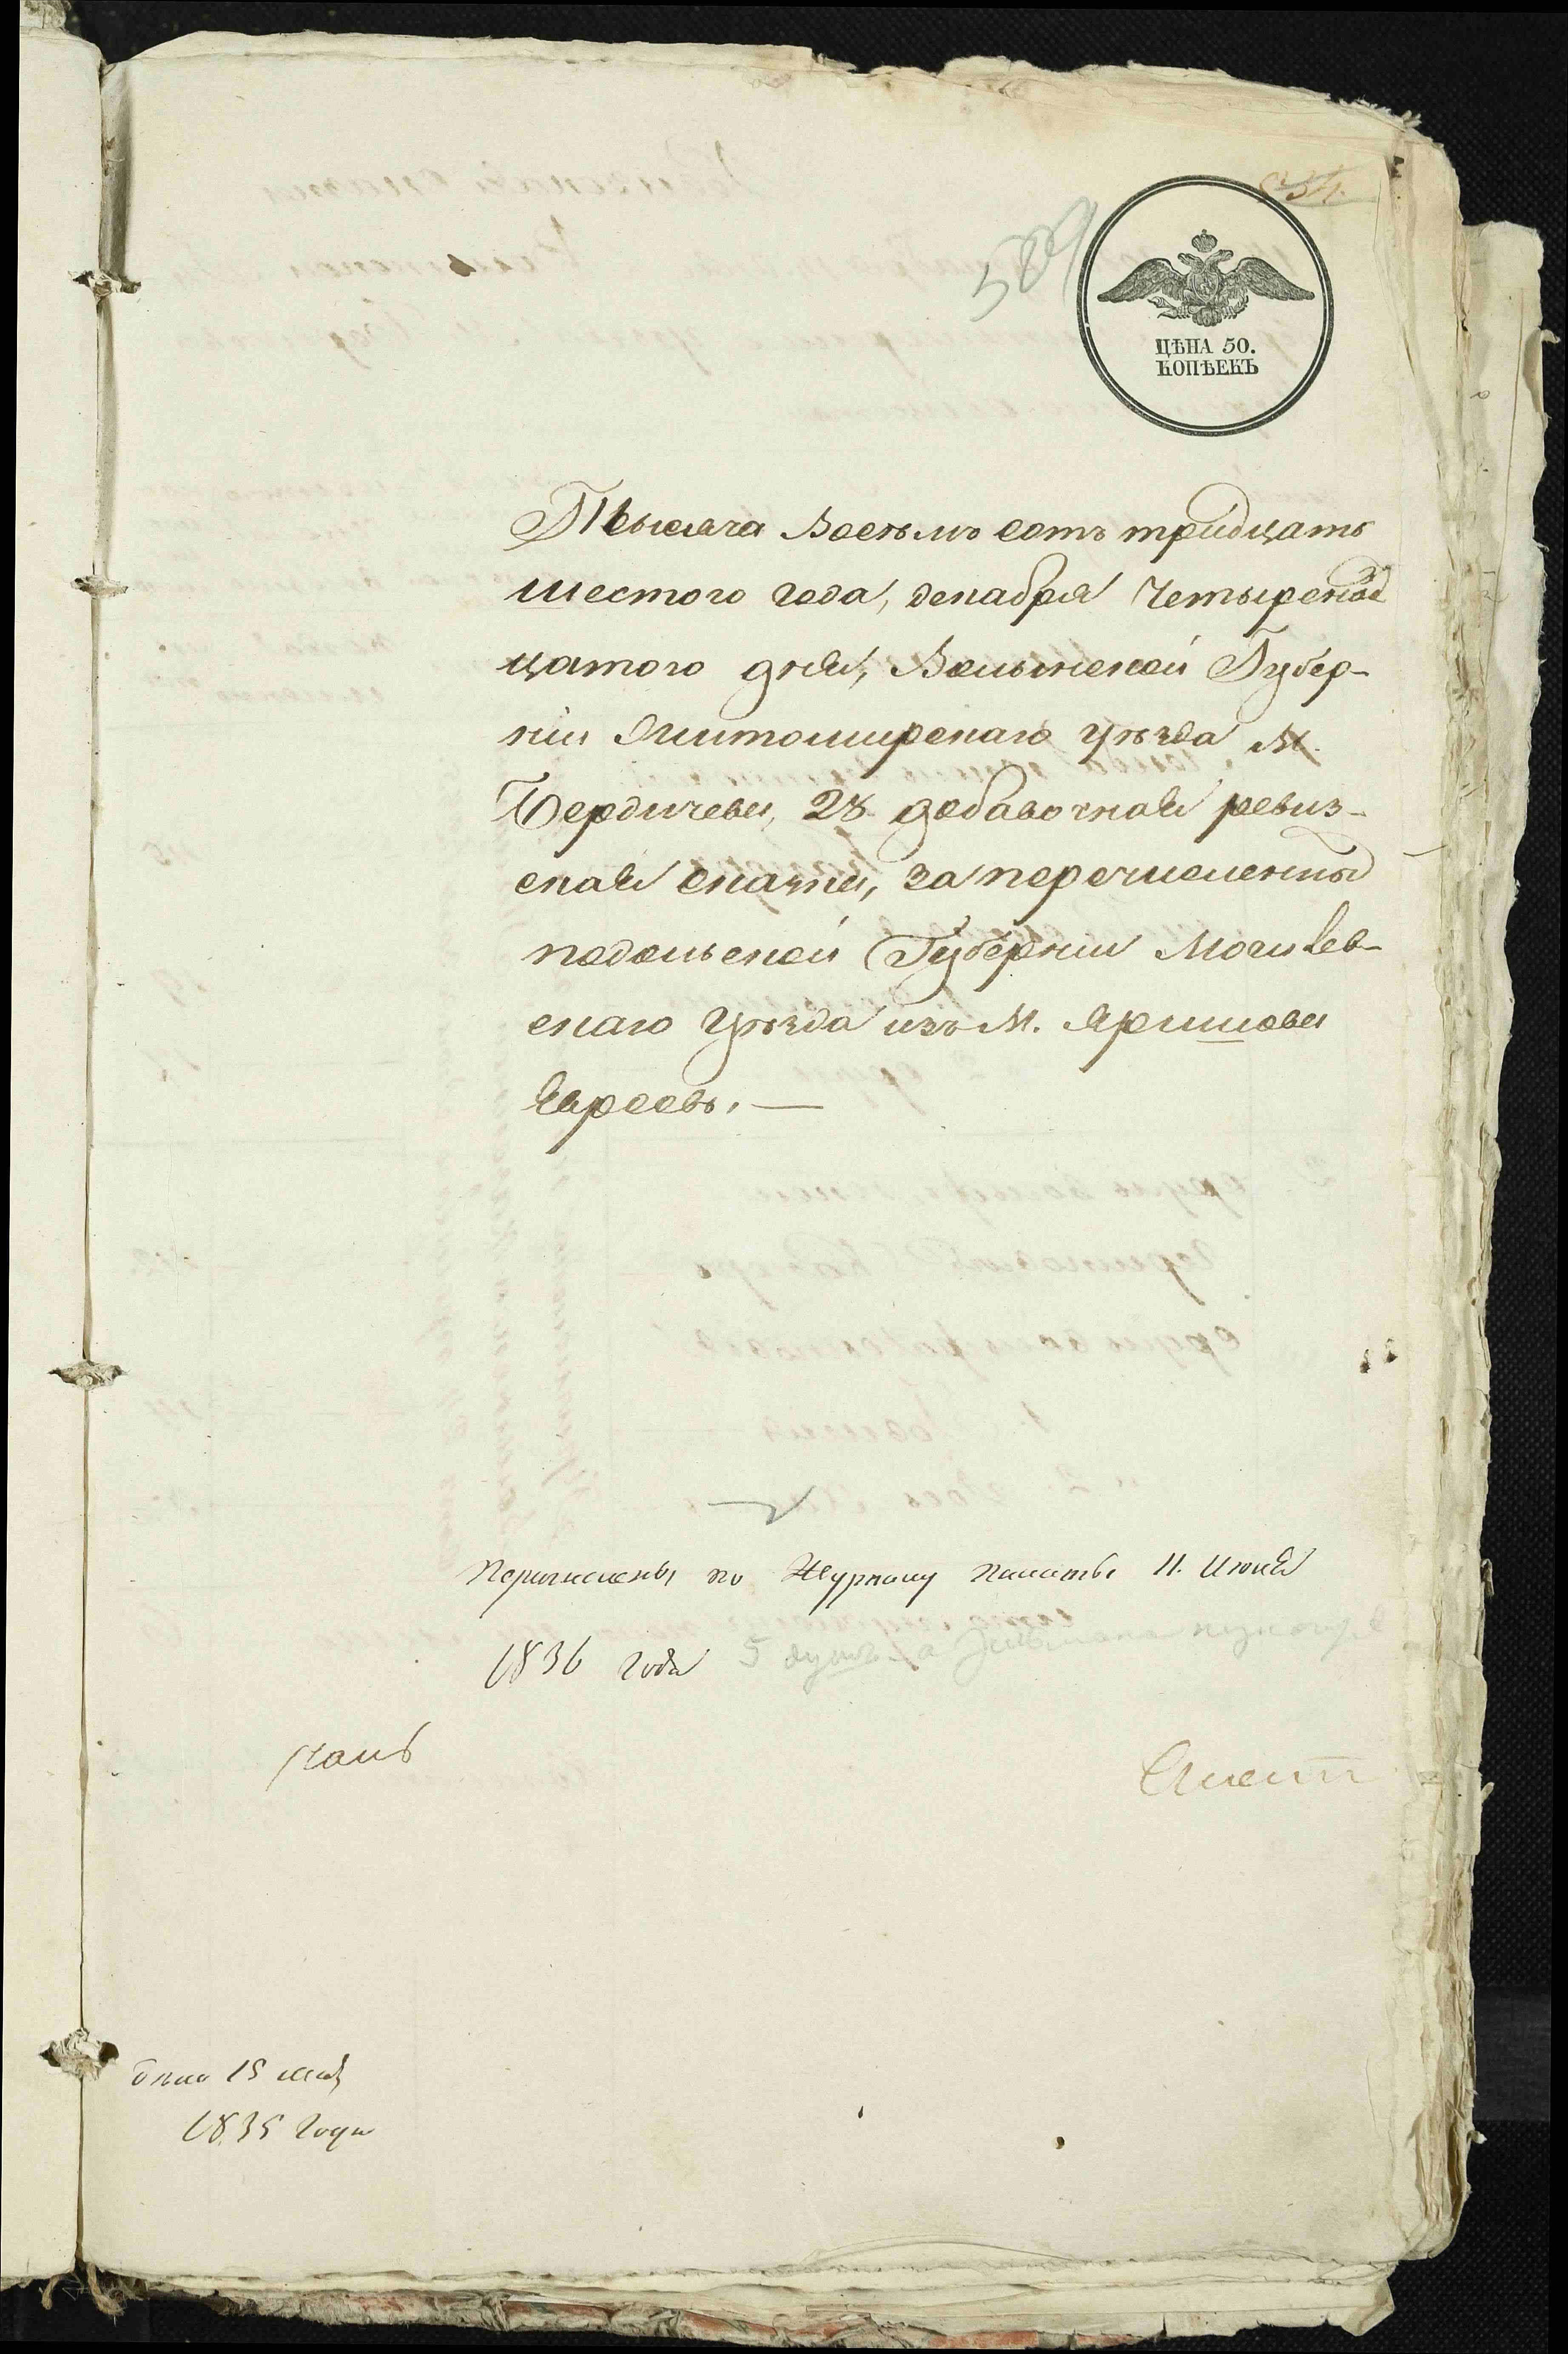 589
ЦѢНА 50.
КОПѢЕКЪ
Тысяча Восемь сотъ тридцать
шестого года, декабря Четыренад
цатого дня, Волынской Губер-
нии Житомирскаго уѣзда М.
Бердичева, 28 добавочная ревиз-
ская сказка, за перечисленныхъ
подольской Губернии Могилев-
скаго уѣзда изъ М. Яришова
Евреевъ. —
Перечислены по Журналу Палаты 11. Июня
1836 года 5 душъ а
15 мая
1835 года